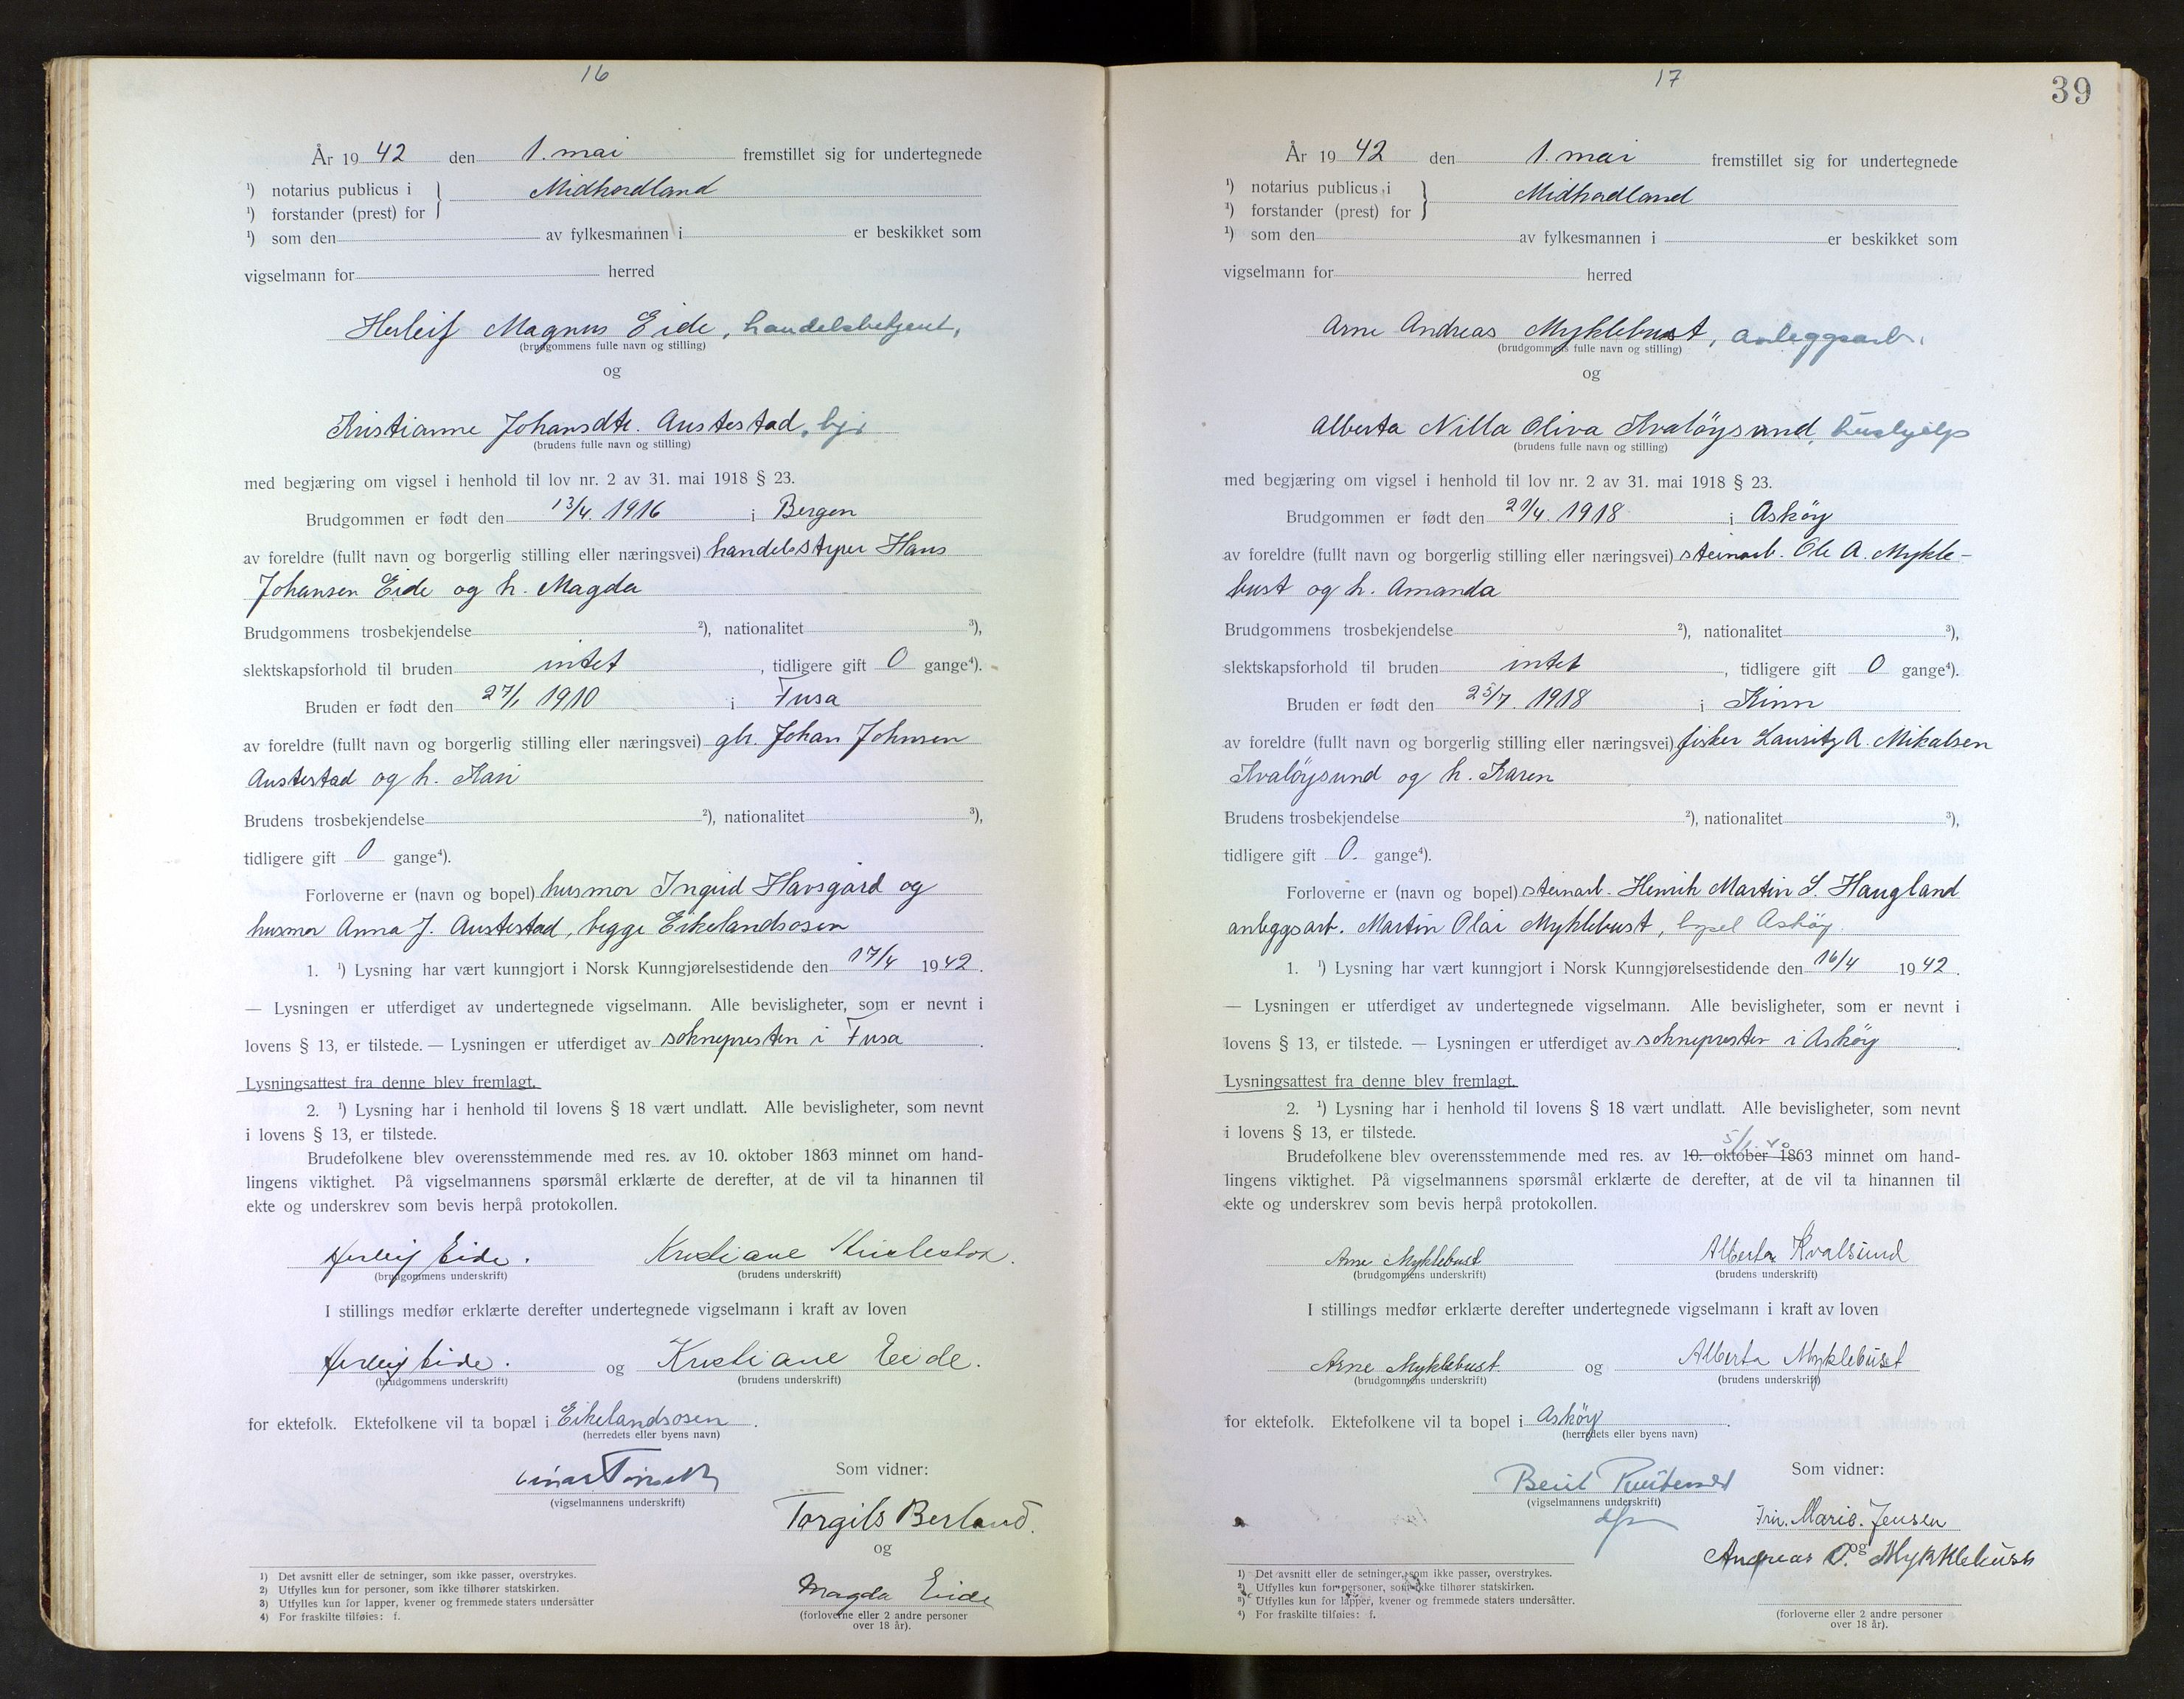 16
År 1942 den 1. mai fremstillet sig for undertegnede
¹) notarius publicus i
Midhordland
¹) forstander (prest) for
¹) som den av fylkesmannen i er beskikket som
vigselmann for herred
Herleif Magnus Eide, handelsbetjent,
(brudgommens fulle navn og stilling)
og
Kristianne Johansdtr. Austestad,
(brudens fulle navn og stilling)
med begjæring om vigsel i henhold til lov nr. 2 av 31. mai 1918 § 23.
Brudgommen er født den 13/4. 1916 i Bergen
av foreldre (fullt navn og borgerlig stilling eller næringsvei) handelsstyrer Hans
Johansen Eide og h. Magda
Brudgommens trosbekjendelse ²), nationalitet ³),
slektskapsforhold til bruden intet, tidligere gift 0 gange⁴).
Bruden er født den 27/1 1910 i Fusa
av foreldre (fullt navn og borgerlig stilling eller næringsvei) gbr. Johan Johnsen
Austestad og h. Kari
Brudens trosbekjendelse ²), nationalitet ³),
tidligere gift 0 gange⁴).
Forloverne er (navn og bopel) husmor Ingrid Havsgård og
husmor Anna J. Austestad, begge Eikelandsosen
1. ¹) Lysning har vært kunngjort i Norsk Kunngjørelsestidende den 17/4 1942.
— Lysningen er utferdiget av undertegnede vigselmann. Alle bevisligheter, som er nevnt i
lovens § 13, er tilstede. — Lysningen er utferdiget av sokneprесten i Fusa.
Lysningsattest fra denne blev fremlagt.
2. ¹) Lysning har i henhold til lovens § 18 vært undlatt. Alle bevisligheter, som nevnt
i lovens § 13, er tilstede.
Brudefolkene blev overensstemmende med res. av 10. oktober 1863 minnet om hand-
lingens viktighet. På vigselmannens spørsmål erklærte de derefter, at de vil ta hinannen til
ekte og underskrev som bevis herpå protokollen.
Herleif Eide. Kristiane
(brudgommens underskrift) (brudens underskrift)
I stillings medfør erklærte derefter undertegnede vigselmann i kraft av loven
Herleif Eide. og Kristiane Eide.
(brudgommens underskrift) (brudens underskrift)
for ektefolk. Ektefolkene vil ta bopæl i Eikelandsosen.
(herredets eller byens navn)
(vigselmannens underskrift)
Som vidner:
Torgils Berland.
og
Magda Eide
(forloverne eller 2 andre personer
over 18 år).
1) Det avsnitt eller de setninger, som ikke passer, overstrykes.
2) Utfylles kun for personer, som ikke tilhører statskirken.
3) Utfylles kun for lapper, kvener og fremmede staters undersåtter
4) For fraskilte tilføies: f.
17
39
År 1942 den 1. mai fremstillet sig for undertegnede
¹) notarius publicus i
Midhordland
¹) forstander (prest) for
¹) som den av fylkesmannen i er beskikket som
vigselmann for herred
Arne Andreas Myklebust, anleggsarb.
(brudgommens fulle navn og stilling)
og
Alberta Nilla Oliva Kvaløysund, hushjelp
(brudens fulle navn og stilling)
med begjæring om vigsel i henhold til lov nr. 2 av 31. mai 1918 § 23.
Brudgommen er født den 1918 i Askøy
av foreldre (fullt navn og borgerlig stilling eller næringsvei) steinarb. Ole A. Mykle-
bust og h. Amanda
Brudgommens trosbekjendelse ²), nationalitet ³),
slektskapsforhold til bruden intet, tidligere gift 0 gange⁴).
Bruden er født den 25/7. 1918 i Kinn
av foreldre (fullt navn og borgerlig stilling eller næringsvei) fisker Lauritz A. Mikalsen
Kvaløysund og h. Karen
Brudens trosbekjendelse ²), nationalitet ³),
tidligere gift 0. gange⁴).
Forloverne er (navn og bopel) steinarb. Henrik Martin S. Haugland
anleggsarb. Martin Olai Myklebust, bopel Askøy.
1. ¹) Lysning har vært kunngjort i Norsk Kunngjørelsestidende den 16/4 1942.
— Lysningen er utferdiget av undertegnede vigselmann. Alle bevisligheter, som er nevnt i
lovens § 13, er tilstede. — Lysningen er utferdiget av soknepresten i Askøy.
Lysningsattest fra denne blev fremlagt.
2. ¹) Lysning har i henhold til lovens § 18 vært undlatt. Alle bevisligheter, som nevnt
i lovens § 13, er tilstede.
Brudefolkene blev overensstemmende med res. av 10. oktober 1863 minnet om hand-
lingens viktighet. På vigselmannens spørsmål erklærte de derefter, at de vil ta hinannen til
ekte og underskrev som bevis herpå protokollen.
Arne Myklebust Alberta Kvalsund
(brudgommens underskrift) (brudens underskrift)
I stillings medfør erklærte derefter undertegnede vigselmann i kraft av loven
Arne Myklebust. og Alberta Myklebust
(brudgommens underskrift) (brudens underskrift)
for ektefolk. Ektefolkene vil ta bopel i Askøy.
(herredets eller byens navn)
(vigselmannens underskrift)
Som vidner:
Marie Jensen
og
Andreas O. Mykklebust
(forloverne eller 2 andre personer
over 18 år).
1) Det avsnitt eller de setninger, som ikke passer, overstrykes.
2) Utfylles kun for personer, som ikke tilhører statskirken.
3) Utfylles kun for lapper, kvener og fremmede staters undersåtter.
4) For fraskilte tilføies: f.